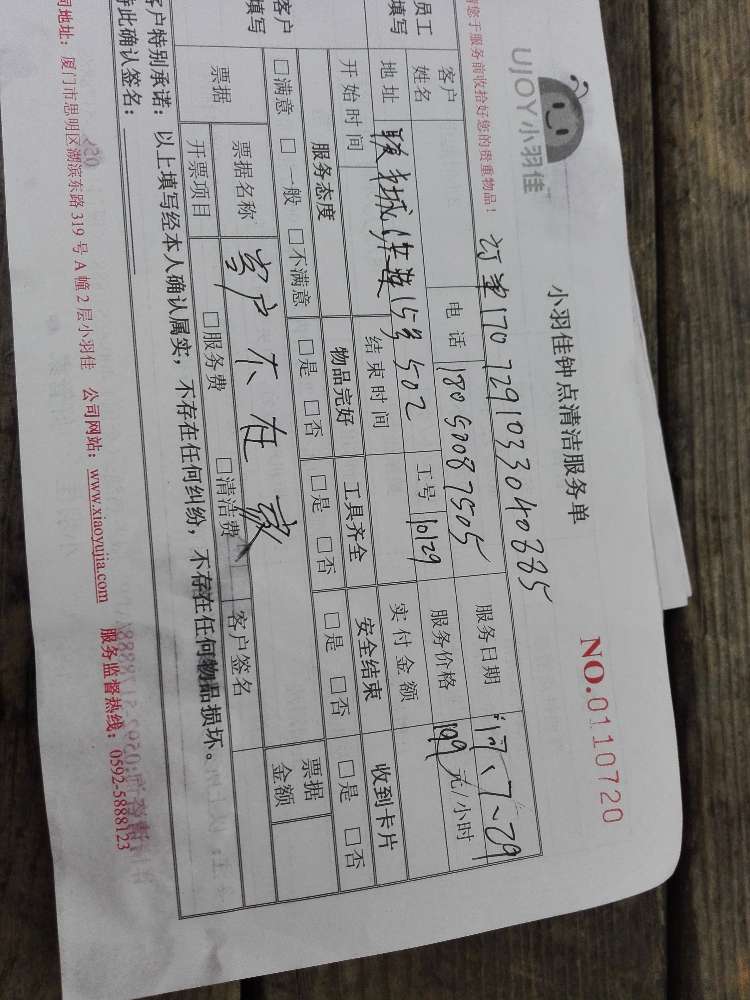 UJOY小羽佳
小羽佳钟点清洁服务单
NO.0110720
请您于服务前收拾好您的贵重物品!
订单1707291033040885
员工填写
客户姓名
电话
18050087505
服务日期
17、7、29
地址
15号502
工号
10129
服务价格
199元/小时
开始时间
结束时间
实付金额
客户填写
服务态度
物品完好
工具齐全
安全结束
收到卡片
□满意 □一般 □不满意
□是 □否
□是 □否
□是 □否
□是 □否
票据
票据名称
客户不在家
票据金额
开票项目
□服务费
□清洁费
客户签名
客户特别承诺:以上填写经本人确认属实,不存在任何纠纷,不存在任何物品损坏。
特此确认签名:
公司地址:厦门市思明区湖滨东路319号A幢2层小羽佳 公司网站:www.xiaoyujia.com 服务监督热线:0592-5888123